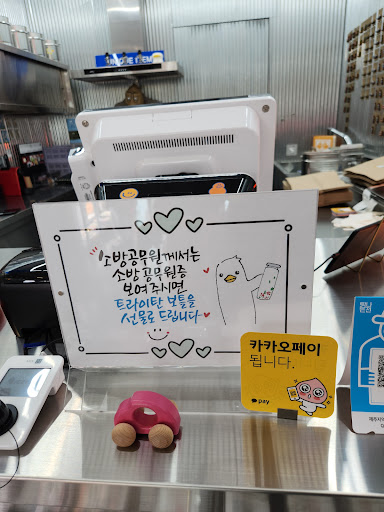 소방공무원께서는
소방공무원증
보여주시면
트라이탄 보틀을
선물로 드립니다
카카오페이
됩니다.
pay